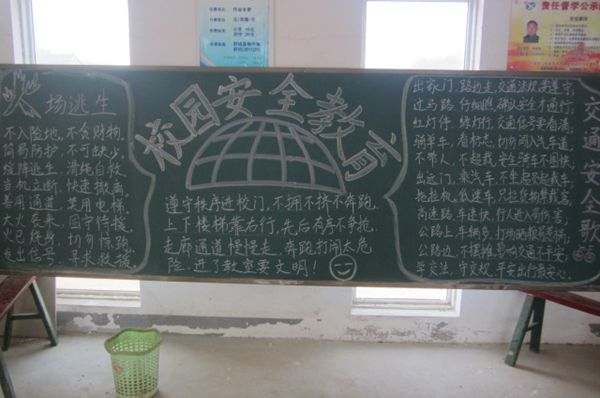 责任督学公示
校园安全教育
火场逃生
不入险地，不贪财物，
简易防护，不可缺少，
缓降逃生，滑绳自救，
当机立断，快速撤离
善用通道，莫用电梯，
大火袭来，固守待援，
火已烧身，切勿惊跑，
发出信号，寻求救援。
遵守秩序进校门，不拥不挤不奔跑，
上下楼梯靠右行，先后有序不争抢，
走廊通道慢慢走，奔跑打闹太危
险，进了教室要文明！
交通安全歌
出家门，路边走，交通法规要遵守，
过马路，仔细瞧，确认安全才通行，
红灯停，绿灯行，交通信号要看清，
骑单车，看标志，切勿闯入汽车道，
不带人，不超载，安全骑车不图快，
出远门，乘汽车，不坐超院超载车，
拖拉机，低速车，只拉货物禁载客，
高速路，车速快，行人进入最伤害，
公路上，车辆多，打场晒粮易惹祸，
公路边，不摆摊，影响交通不平安，
学交法，守交权，平安出行最安心。